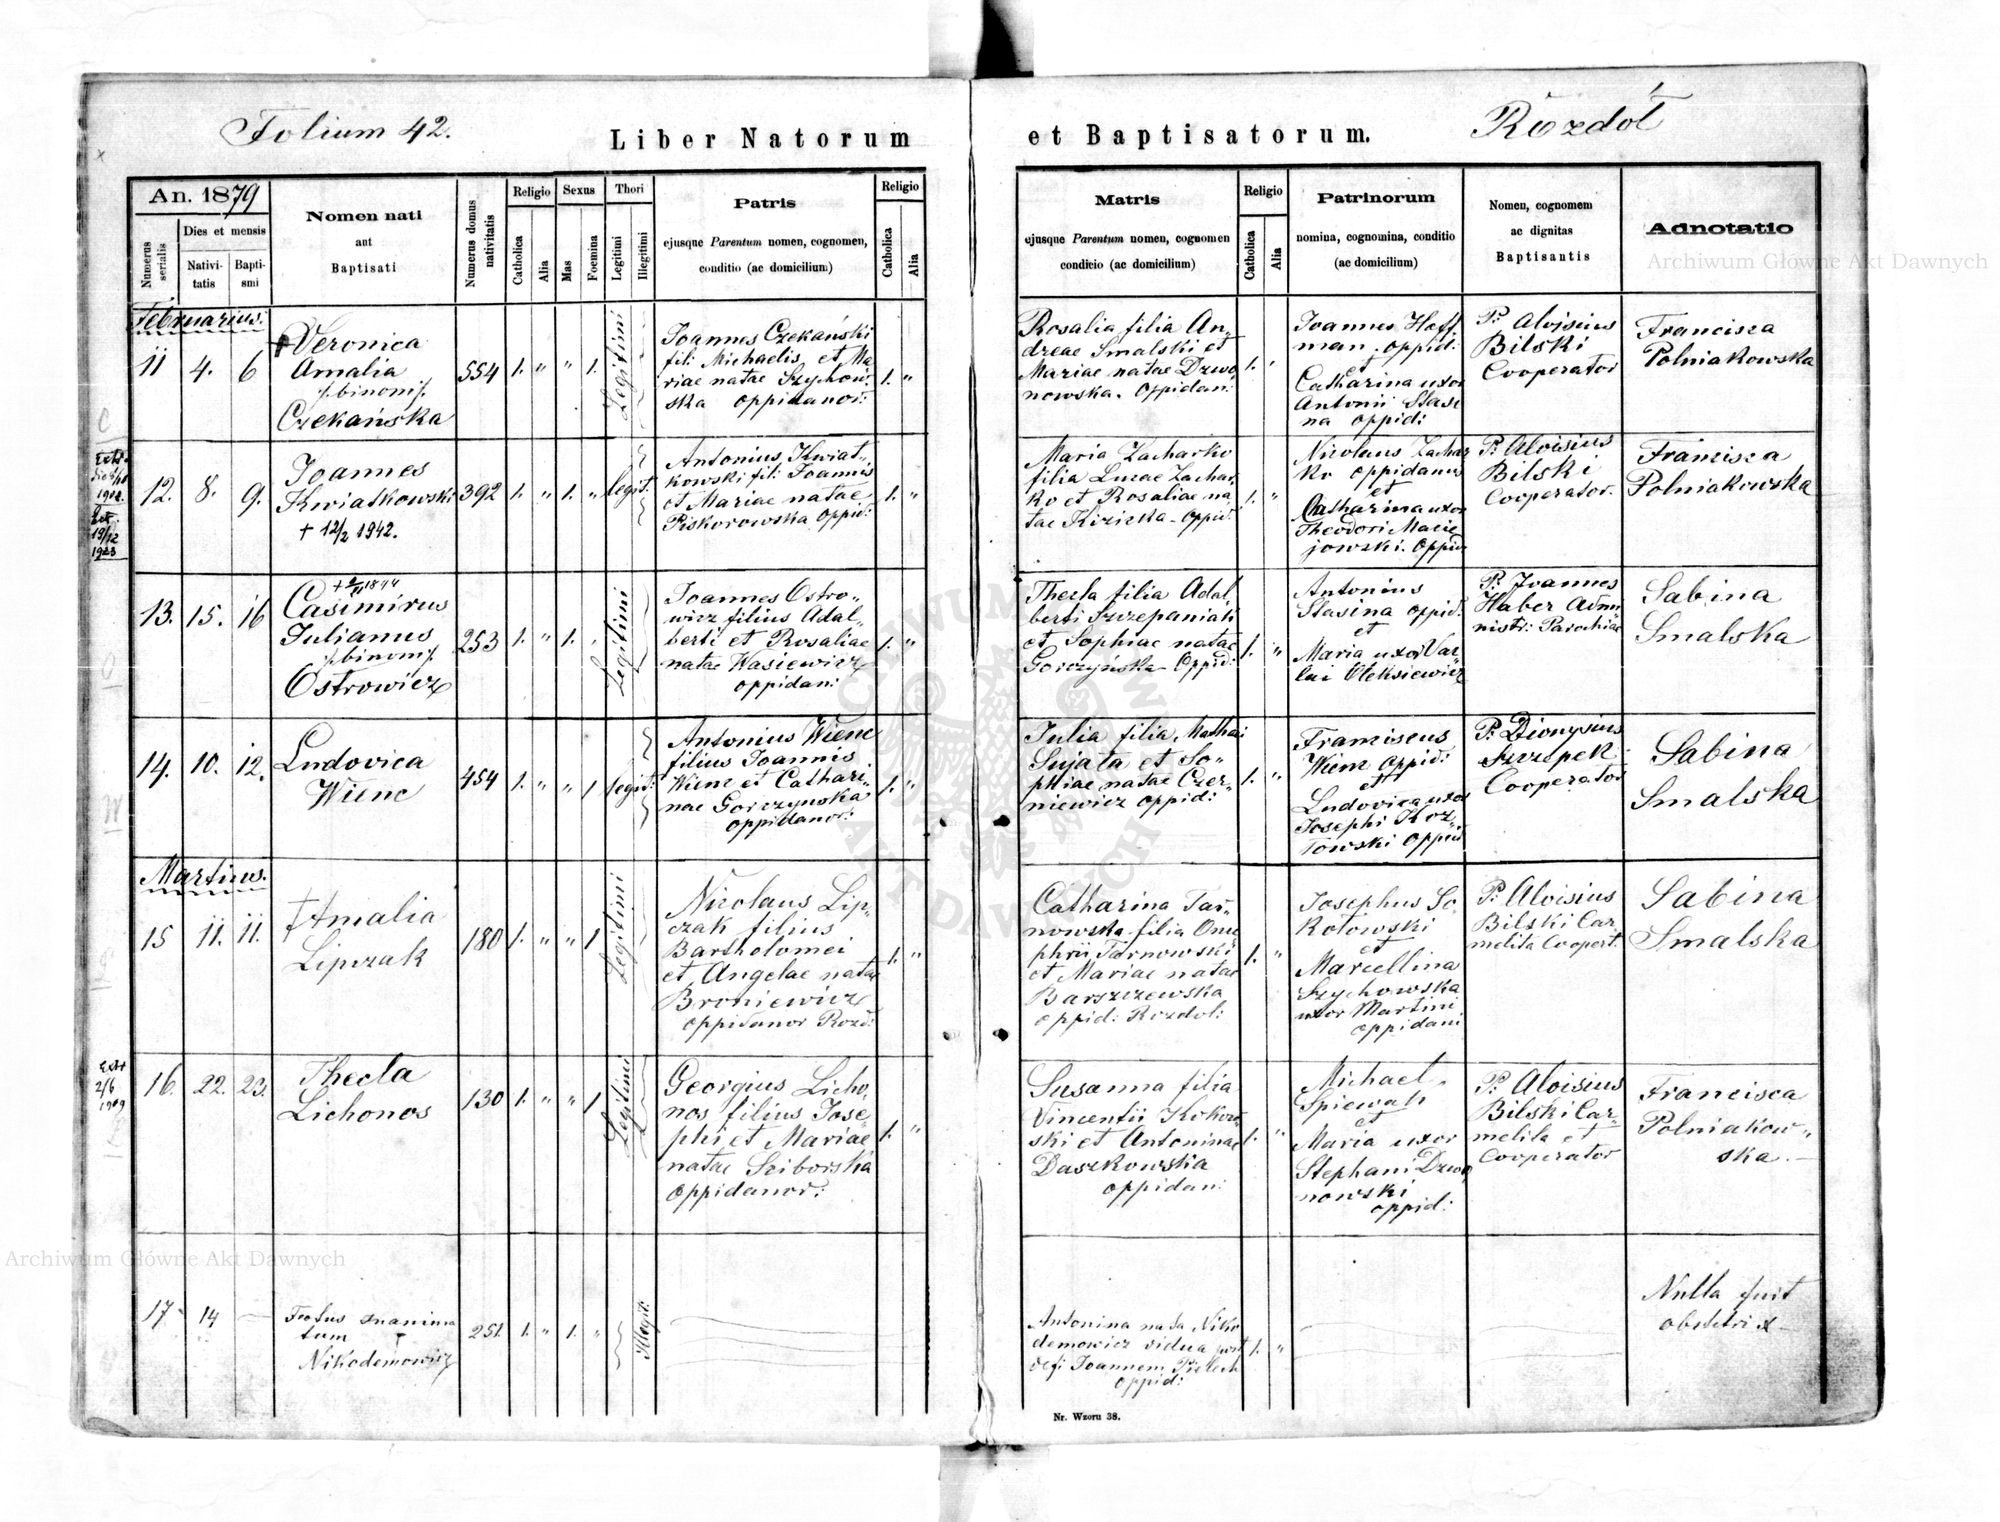 Folium 42.
Liber Natorum et Baptisatorum.
Rozdół
An. 1879
Numerus serialis
Dies et mensis
Nativi-
tatis
Bapti-
smi
Nomen nati
aut
Baptisati
Numerus domus nativitatis
Religio
Catholica
Alia
Sexus
Mas
Foemina
Thori
Legitimi
Illegitimi
Patris
ejusque Parentum nomen, cognomen,
conditio (ac domicilium)
Religio
Catholica
Alia
Matris
ejusque Parentum nomen, cognomen
condicio (ac domicilium)
Religio
Catholica
Alia
Patrinorum
nomina, cognomina, conditio
(ac domicilium)
Nomen, cognomem
ac dignitas
Baptisantis
Adnotatio
Archiwum Główne Akt Dawnych
Februarius.
11 4. 6
Veronica
Amalia
/:binom:/
Czekańska
554 1. " " 1.
Legitimi
Joannes Czekański
fil: Michaelis et Ma
riae natae Szychow
ska oppidanor:
1. "
Rosalia filia An„
dreae Smalski et
Mariae natae Dzwo
nowska. Oppidan:
1. "
Joannes Hoff
man. oppid:
et
Catharina uxor
Antonii Stasi
na oppid:
P: Aloisius
Bilski
Cooperator
Francisca
Polniakowska
12. 8. 9.
Joannes
Kwiatkowski
+ 12/2 1942.
392 1. " 1. "
legit:
Antonius Kwiat„
kowski fil: Joannis
et Mariae natae
Piskorowska Oppid:
1. "
Maria Zacharko
filia Lucae Zachar
ko et Rosaliae na
tae Kiziczka - Oppid:
1. "
Nicolaus Zachar
ko oppidanus
et
Catharina uxor
Theodori Macie
jowski. Oppid
P: Aloisius
Bilski
Cooperator.
Francisca
Polniakowska
13. 15. 16
Casimirus
Julianus
/:binom:/
Ostrowicz
253 1. " 1. "
Legitimi
Joannes Ostro„
wicz filius Adal„
berti et Rosaliae
natae Wasiewicz
oppidan:
1. "
Thecla filia Adal„
berti Szczepaniak
et Sophiae natae
Gorczyńska Oppid:
1. "
Antonius
Stasina oppid:
et
Maria uxor Var„
lai Oleksiewicz
P: Joannes
Haber Admi
nistr: Parochiae
Sabina
Smalska
14. 10. 12.
Ludovica
Wienc
454 1. " " 1
legit:
Antonius Wienc
filius Joannis
Wienc et Cathari„
nae Gorczynska
oppidanor:
1. "
Julia filia Mathaei
Sujata et So„
phiae natae Czer„
niewicz oppid:
1. "
Franciscus
Wienc oppid:
et
Ludovica uxor
Josephi Koz„
łowski oppid
P: Dionysius
Szczepek
Cooperator
Sabina
Smalska
Martius.
15 11. 11.
†Amalia
Lipczak
180 1. " " 1
Legitimi
Nicolaus Lip„
czak filius
Bartholomei
et Angelae natae
Broniewicz
oppidanor Rozd:
1. "
Catharina Tar„
nowska filia Onu
phrii Tarnowski
et Mariae natae
Barszczewska
oppid: Rozdol:
1. "
Josephus So„
kołowski
et
Marcellina
Szychowska
uxor Martini
oppidani
P: Aloisius
Bilski Car„
melita Coopert.
Sabina
Smalska
Ext
2/6
1909
16. 22. 23.
Thecla
Lichonos
130 1. " " 1
Legitimi
Georgius Licho„
nos filius Jose„
phi et Mariae
natae Sciborska
oppidanor:
1. "
Susanna filia
Vincentii Kokow
ski et Antoninae
Daszkowska
oppidan:
1. "
Michael
Spiewak
et
Maria uxor
Stephani Dzwo
nowski
oppid:
P: Aloisius
Bilski Car„
melita et
Cooperator
Francisca
Polniakow„
ska.
Archiwum Główne Akt Dawnych
17 14 —
Foetus inanima
tum
Nikodemowicz
251. 1. " 1. "
Illegit:
Antonina nata Niko
demowicz vidua post
def: Joannem
oppid:
1. "
Nulla fuit
obstetrix
Nr. Wzoru 38.